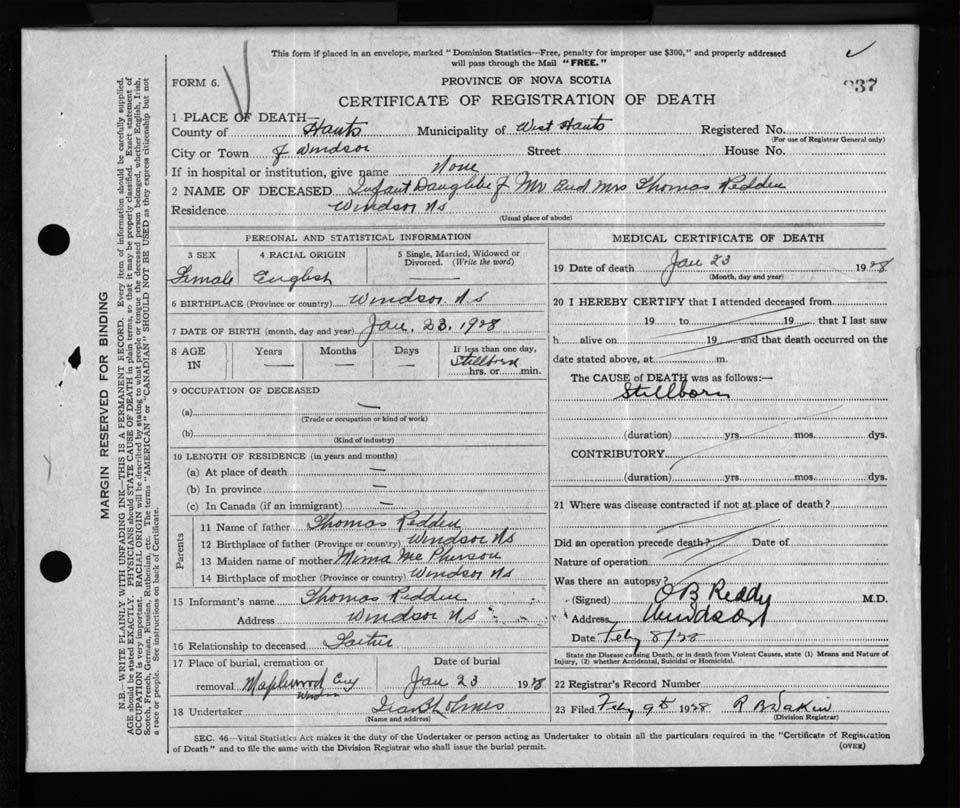 This form if placed in an envelope, marked "Dominion Statistics—Free, penalty for improper use $300," and properly addressed
will pass through the Mail "FREE."
FORM 6.
PROVINCE OF NOVA SCOTIA
937
CERTIFICATE OF REGISTRATION OF DEATH
1 PLACE OF DEATH—
County of Hants Municipality of West Hants Registered No.
(For use of Registrar General only)
City or Town of Windsor Street House No.
If in hospital or institution, give name None
2 NAME OF DECEASED Infant Daughter of Mr and Mrs Thomas Redden
Residence Windsor NS
(Usual place of abode)
PERSONAL AND STATISTICAL INFORMATION
3 SEX 4 RACIAL ORIGIN 5 Single, Married, Widowed or
Divorced. (Write the word)
Female English —
6 BIRTHPLACE (Province or country) Windsor. N.S
7 DATE OF BIRTH (month, day and year) Jan. 23, 1928
8 AGE Years Months Days If less than one day,
IN — — — Stillborn
hrs. or min.
9 OCCUPATION OF DECEASED
(a) —
(Trade or occupation or kind of work)
(b)
(Kind of industry)
10 LENGTH OF RESIDENCE (in years and months)
(a) At place of death —
(b) In province —
(c) In Canada (if an immigrant) —
Parents
11 Name of father Thomas Redden
12 Birthplace of father (Province or country) Windsor NS
13 Maiden name of mother Mima McPherson
14 Birthplace of mother (Province or country) Windsor NS
15 Informant's name Thomas Redden
Address Windsor NS
16 Relationship to deceased Father
17 Place of burial, cremation or Date of burial
removal Maplewood Cey Jan 23 1928
Windsor
18 Undertaker Ira B Holmes
(Name and address)
MEDICAL CERTIFICATE OF DEATH
19 Date of death Jan 23 1928
(Month, day and year)
20 I HEREBY CERTIFY that I attended deceased from
19 to 19 that I last saw
h alive on 19 and that death occurred on the
date stated above, at m.
The CAUSE of DEATH was as follows:—
Stillborn
(duration) yrs. mos. dys.
CONTRIBUTORY
(duration) yrs. mos. dys.
21 Where was disease contracted if not at place of death?
Did an operation precede death? Date of
Nature of operation
Was there an autopsy?
(Signed) O B Reddy M.D.
Address Windsor
Date Feby 8/28
State the Disease causing Death, or in death from Violent Causes, state (1) Means and Nature of
Injury, (2) whether Accidental, Suicidal or Homicidal.
22 Registrar's Record Number
23 Filed Feby 9th 1928 R B Dakin
(Division Registrar)
SEC. 46—Vital Statistics Act makes it the duty of the Undertaker or person acting as Undertaker to obtain all the particulars required in the "Certificate of Registration
of Death" and to file the same with the Division Registrar who shall issue the burial permit.
(OVER)
MARGIN RESERVED FOR BINDING
N.B.—WRITE PLAINLY WITH UNFADING INK—THIS IS A PERMANENT RECORD. Every item of information should be carefully supplied.
AGE should be stated EXACTLY. PHYSICIANS should STATE CAUSE OF DEATH in plain terms, so that it may be properly classified. Exact statement of
OCCUPATION is very important. RACIAL ORIGIN will be described by stating to what people or tongue the deceased person belonged, whether English, Irish,
Scotch, French, German, Russian, Ruthenian, etc. The terms "AMERICAN" or "CANADIAN" SHOULD NOT BE USED as they express citizenship but not
a race or people. See instructions on back of Certificate.